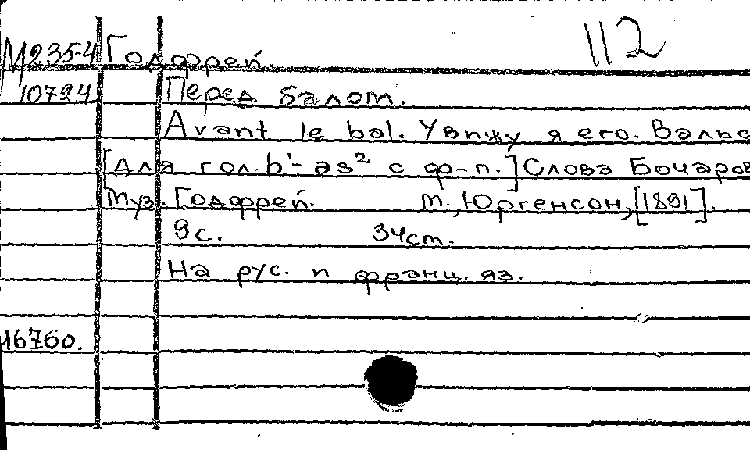 112
М235-4 Годфрей.
10794 Перед балом.
Avant le bal. Увижу я его. Вальс
[для гол. b¹- as² с ф-п.] Слова Бочаров
Муз. Годфрей. М., Юргенсон, [1891].
9с. 34cm.
На рус. и франц. яз.
16760.